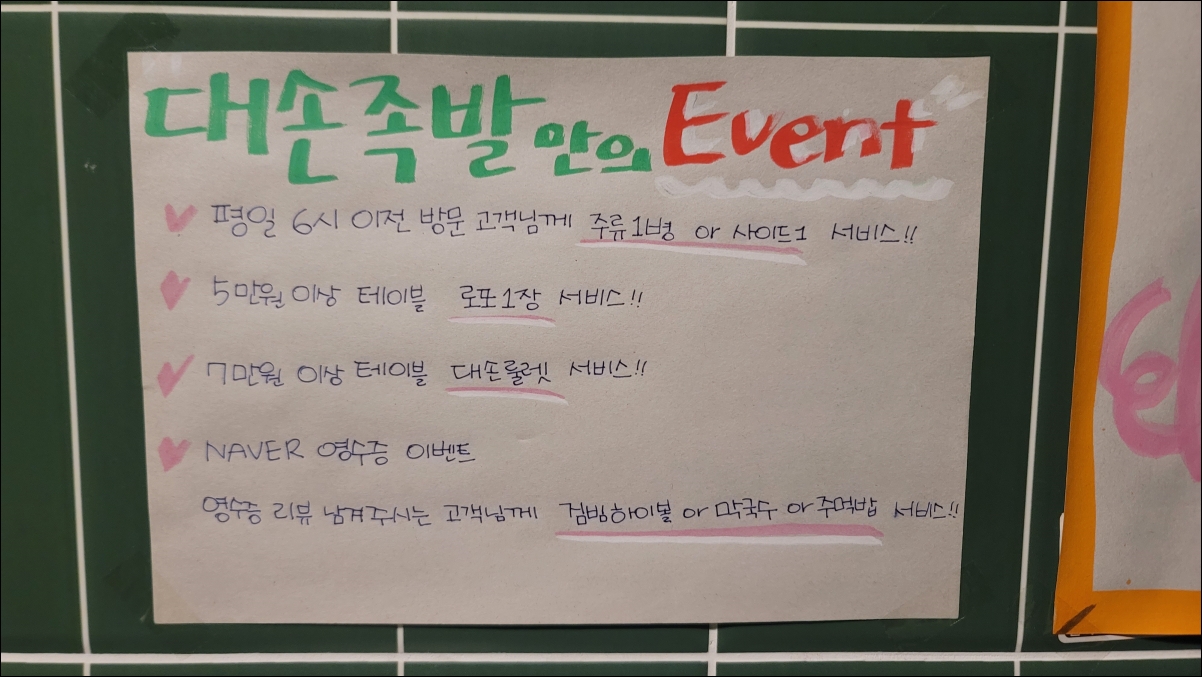 대손족발만의 Event
평일 6시 이전 방문 고객님께 주류1병 or 사이드1 서비스!!
5만원 이상 테이블 로또1장 서비스!!
7만원 이상 테이블 대손룰렛 서비스!!
NAVER 영수증 이벤트
영수증 리뷰 남겨주시는 고객님께 짐빔하이볼 or 막국수 or 주먹밥 서비스!!